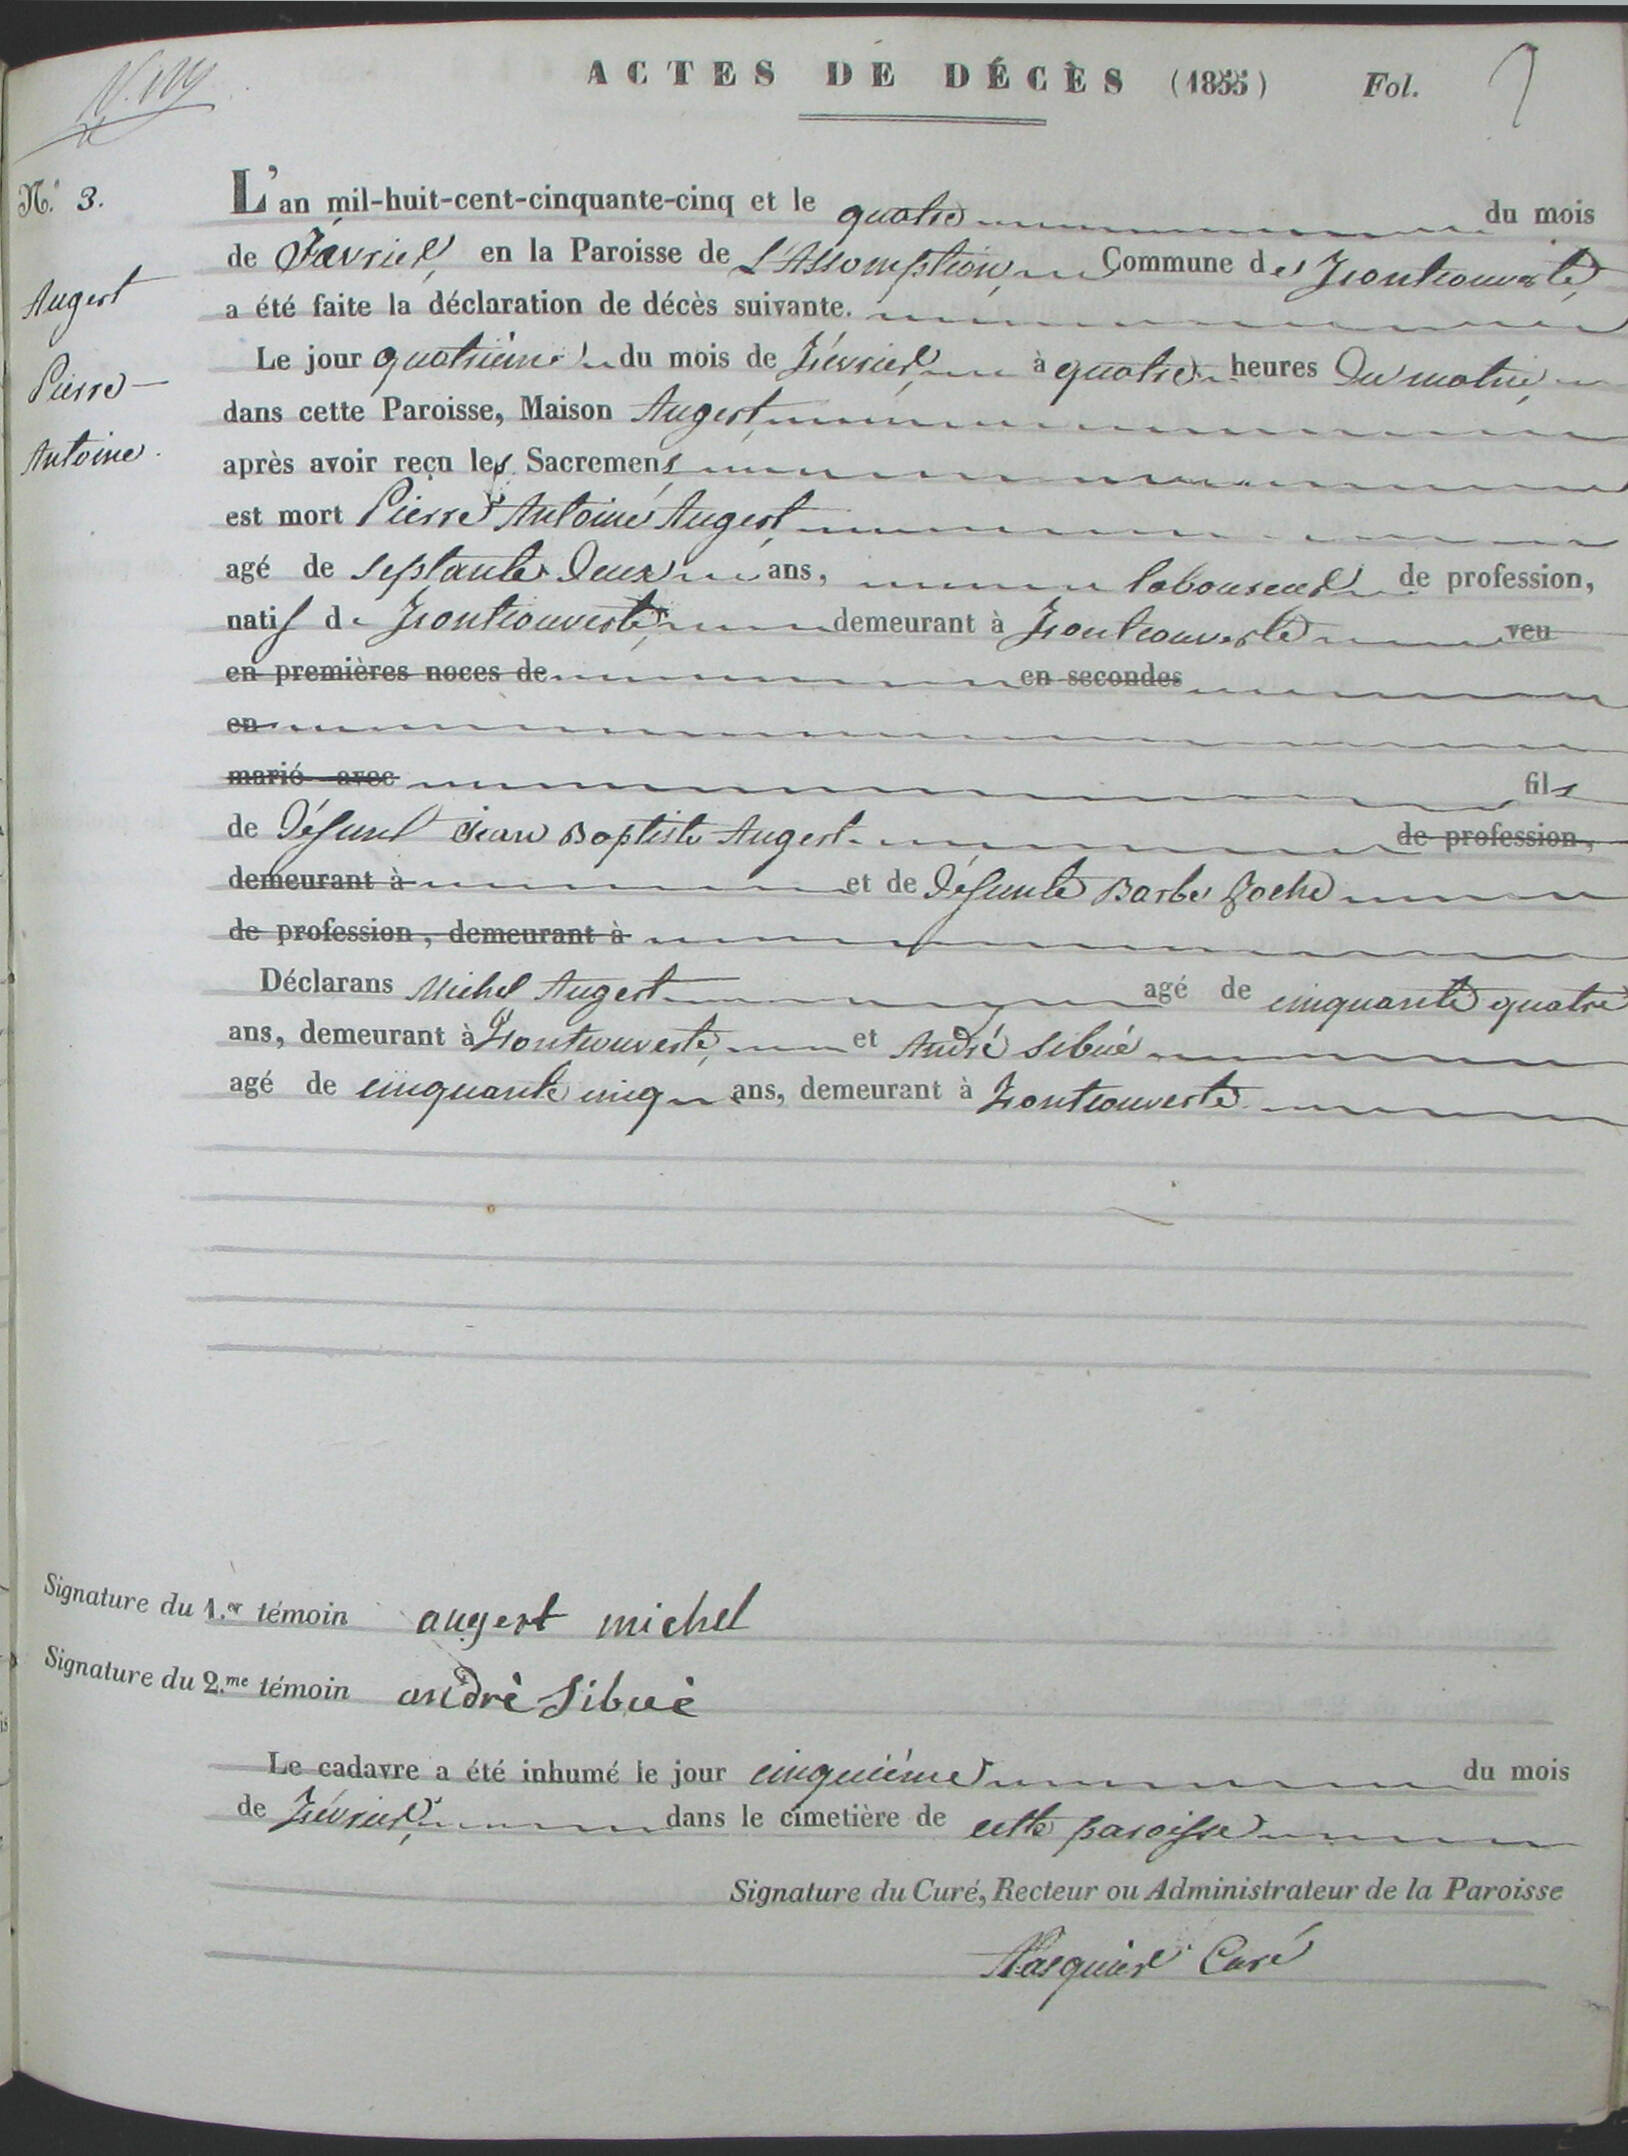 ACTES DE DÉCÈS (1855) Fol.
N.° 3.
L'an mil-huit-cent-cinquante-cinq et le quatre du mois
de Février, en la Paroisse de L'Assomption, Commune de Fontcouverte,
Augert
a été faite la déclaration de décès suivante.
Le jour quatrième du mois de Février, à quatre heures du matin,
Pierre
dans cette Paroisse, Maison Augert,
Antoine.
après avoir reçu les Sacremens
est mort Pierre Antoine Augert,
agé de septante deux ans, laboureur de profession,
natif de Fontcouverte, demeurant à Fontcouverte veu
en premières noces de en secondes
en
marié avec fils
de défunt Jean Baptiste Augert de profession,
demeurant à et de défunte Barbe
de profession, demeurant à
Déclarans Michel Augert agé de cinquante quatre
ans, demeurant à Fontcouverte, et André Sibué
agé de cinquante cinq ans, demeurant à Fontcouverte
Signature du 1.er témoin augert michel
Signature du 2.me témoin andrè Sibuè
Le cadavre a été inhumé le jour cinquième du mois
de Février, dans le cimetière de cette paroisse
Signature du Curé, Recteur ou Administrateur de la Paroisse
Curé